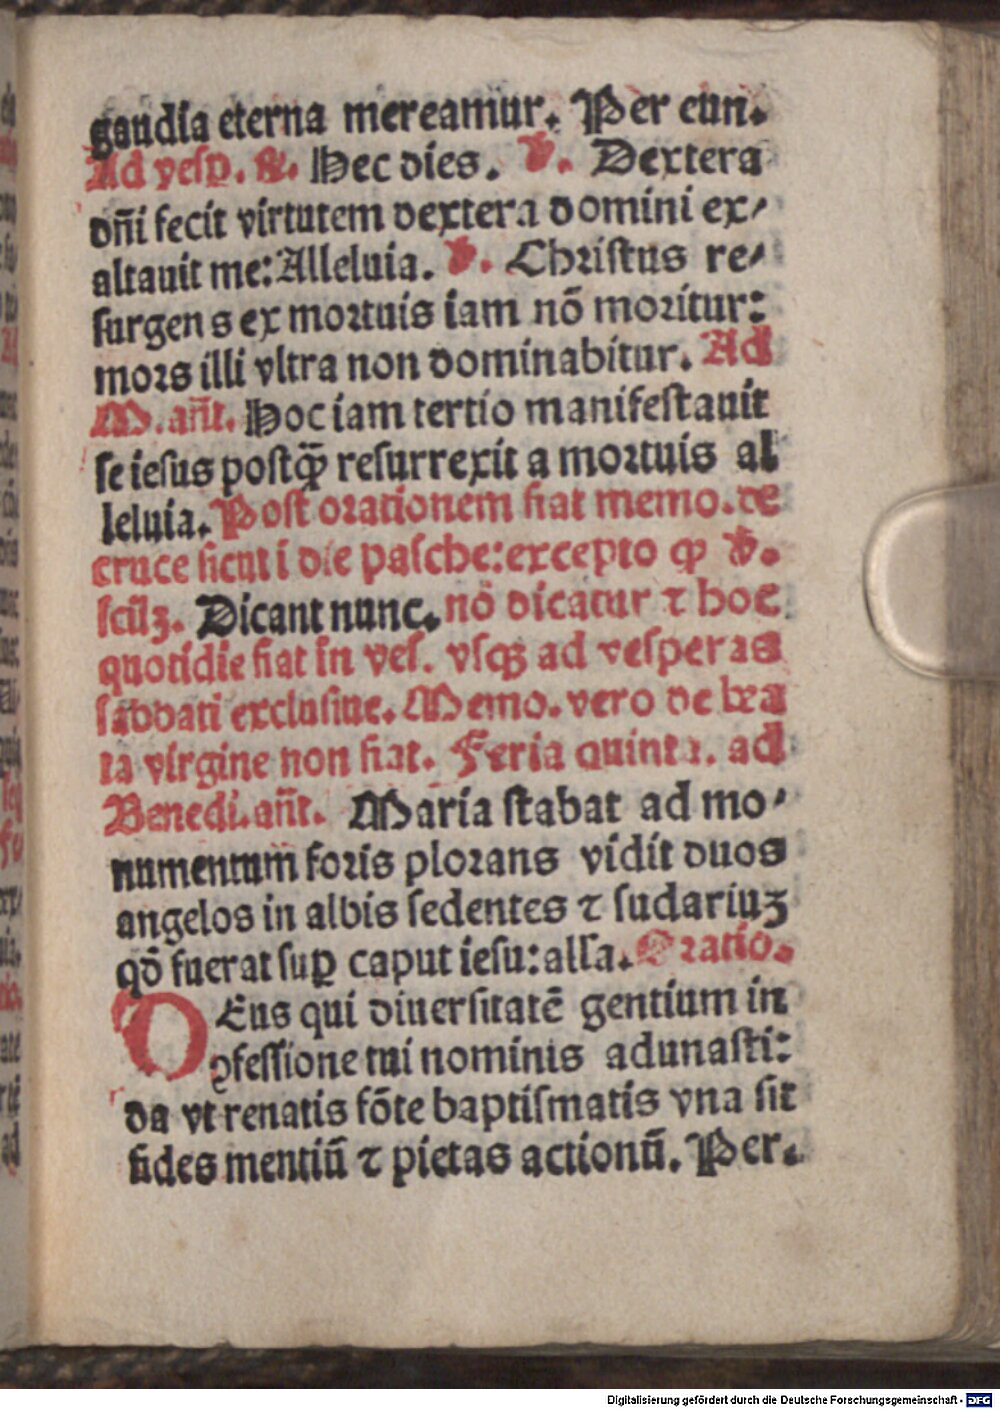 gaudia eterna mereamur. Per eun.
Ad vesp. R. Hec dies. V. Dextera
dñi fecit virtutem dextera domini ex/
altauit me: Alleluia. V. Christus re/
surgens ex mortuis iam nō moritur:
mors illi vltra non dominabitur. Ad
M. añt. Hoc iam tertio manifestauit
se iesus postꝙ̃ resurrexit a mortuis al
leluia. Post orationem fiat memo. de
cruce sicut i die pasche: excepto ꝙ V.
scilʒ. Dicant nunc. nō dicatur ⁊ hoc
quotidie fiat in ves. vsqʒ ad vesperas
sabbati exclusiue. Memo. vero de bea
ta virgine non fiat. Feria quinta. ad
Benedi. añt. Maria stabat ad mo/
numentum foris plorans vidit duos
angelos in albis sedentes ⁊ sudariuʒ
qđ fuerat suꝑ caput iesu: alla. Oratio.
DEus qui diuersitatē gentium in
ꝯfessione tui nominis adunasti:
da vt renatis fōte baptismatis vna sit
fides mentiū ⁊ pietas actionū. Per.
Digitalisierung gefördert durch die Deutsche Forschungsgemeinschaft - DFG